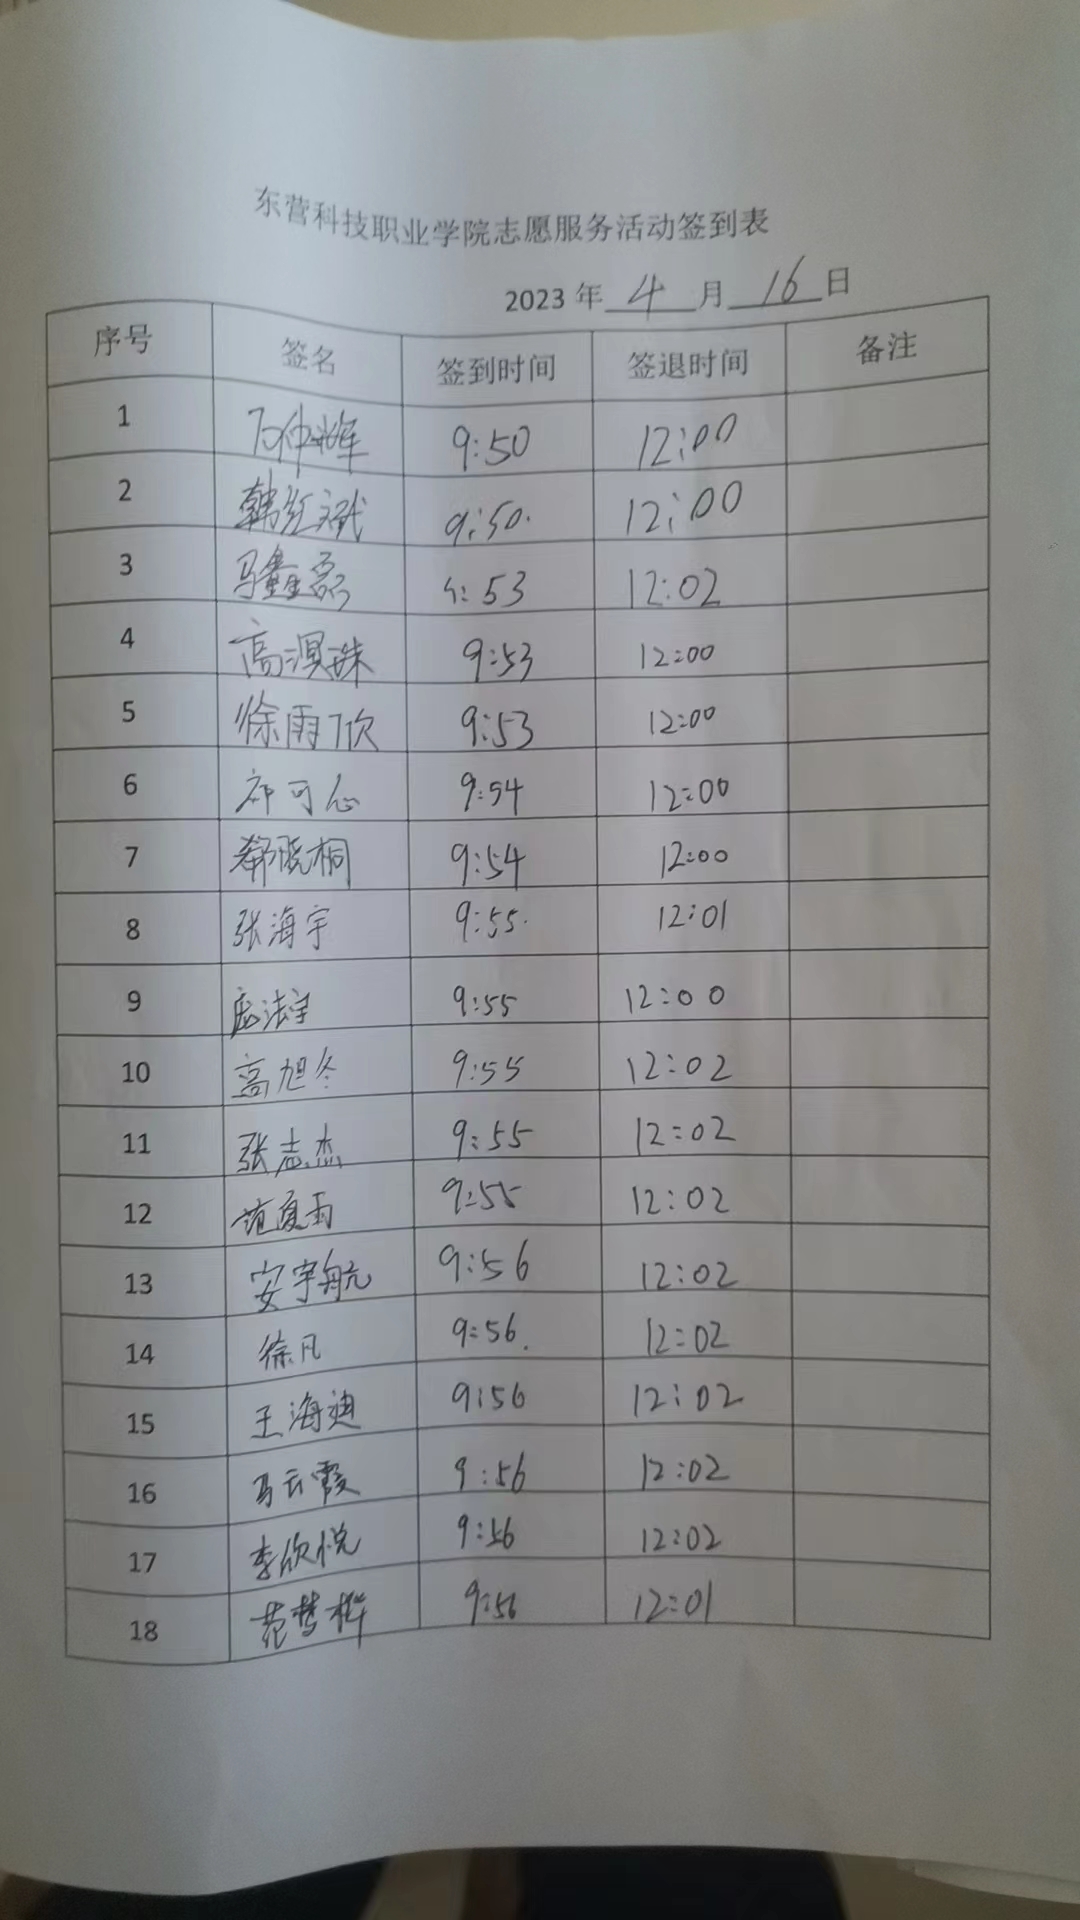 东营科技职业学院志愿服务活动签到表
2023 年 4 月 16 日
序号 签名 签到时间 签退时间 备注
1 石仲辉 9:50 12:00
2 韩红斌 9:50. 12:00
3 马鑫磊 :53 12:02
4 高溟姝 9:53 12:00
5 徐雨欣 9:53 12:00
6 可心 9:54 12:00
7 郗晓桐 9:54 12:00
8 张海宇 9:55. 12:01
9 法宇 9:55 12:00
10 高旭冬 9:55 12:02
11 张志杰 9:55 12:02
12 范夏雨 9:55 12:02
13 安宇航 9:56 12:02
14 徐凡 9:56. 12:02
15 王海迪 9:56 12:02
16 马云霞 9:56 12:02
17 李欣悦 9:56 12:02
18 范梦桦 9:56 12:01